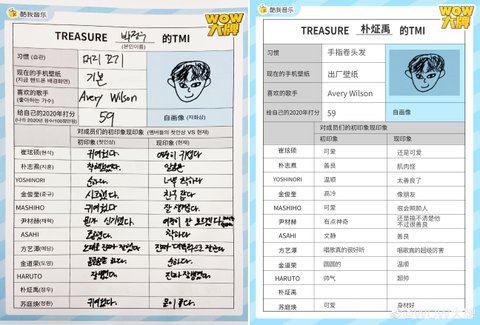 酷我音乐
WOW大牌
TREASURE 박정우 的TMI
(본인이름)
习惯 (습관) 머리 꼬기
现在的手机壁纸
(지금 핸드폰 배경화면) 기본
喜欢的歌手
(좋아하는 가수) Avery Wilson
给自己的2020年打分 59
自画像 (자화상)
对成员们的初印象现印象 (멤버들의 첫인상 VS 현재)
初印象 (첫인상) 现印象 (현재)
崔玹硕(현석) 귀여웠다. 여전히 귀엽다
朴志焄(지훈)
YOSHINORI 순하다. 너무 착하다
金俊奎(준규) 시크했다. 친구같다
MASHIHO 귀여웠다
尹材赫(재혁) 뭔가 신기했다.
ASAHI 착하다
方艺潭(예담) 노래를 진짜 잘했다
金道荣(도영) 순하다.
HARUTO 잘생겼다. 진짜 잘생겼다
朴炡禹(정우)
苏庭焕(정환) 귀여웠다. 몸이 좋다.
酷我音乐
WOW大牌
TREASURE 朴炡禹 的TMI
习惯 手指卷头发
现在的手机壁纸 出厂壁纸
喜欢的歌手 Avery Wilson
给自己的2020年打分 59
自画像
对成员们的初印象现印象
初印象 现印象
崔玹硕 可爱 还是可爱
朴志焄 善良 肌肉怪
YOSHINORI 温顺 太善良了
金俊奎 高冷 像朋友
MASHIHO 可爱 很会照顾人
尹材赫 有点神奇 还是搞不清楚他
不过很善良
ASAHI 文静 善良
方艺潭 唱歌真的很好听 唱歌真的超级厉害
金道荣 圆圆的 温顺
HARUTO 帅气 超帅
朴炡禹
苏庭焕 可爱 身材好